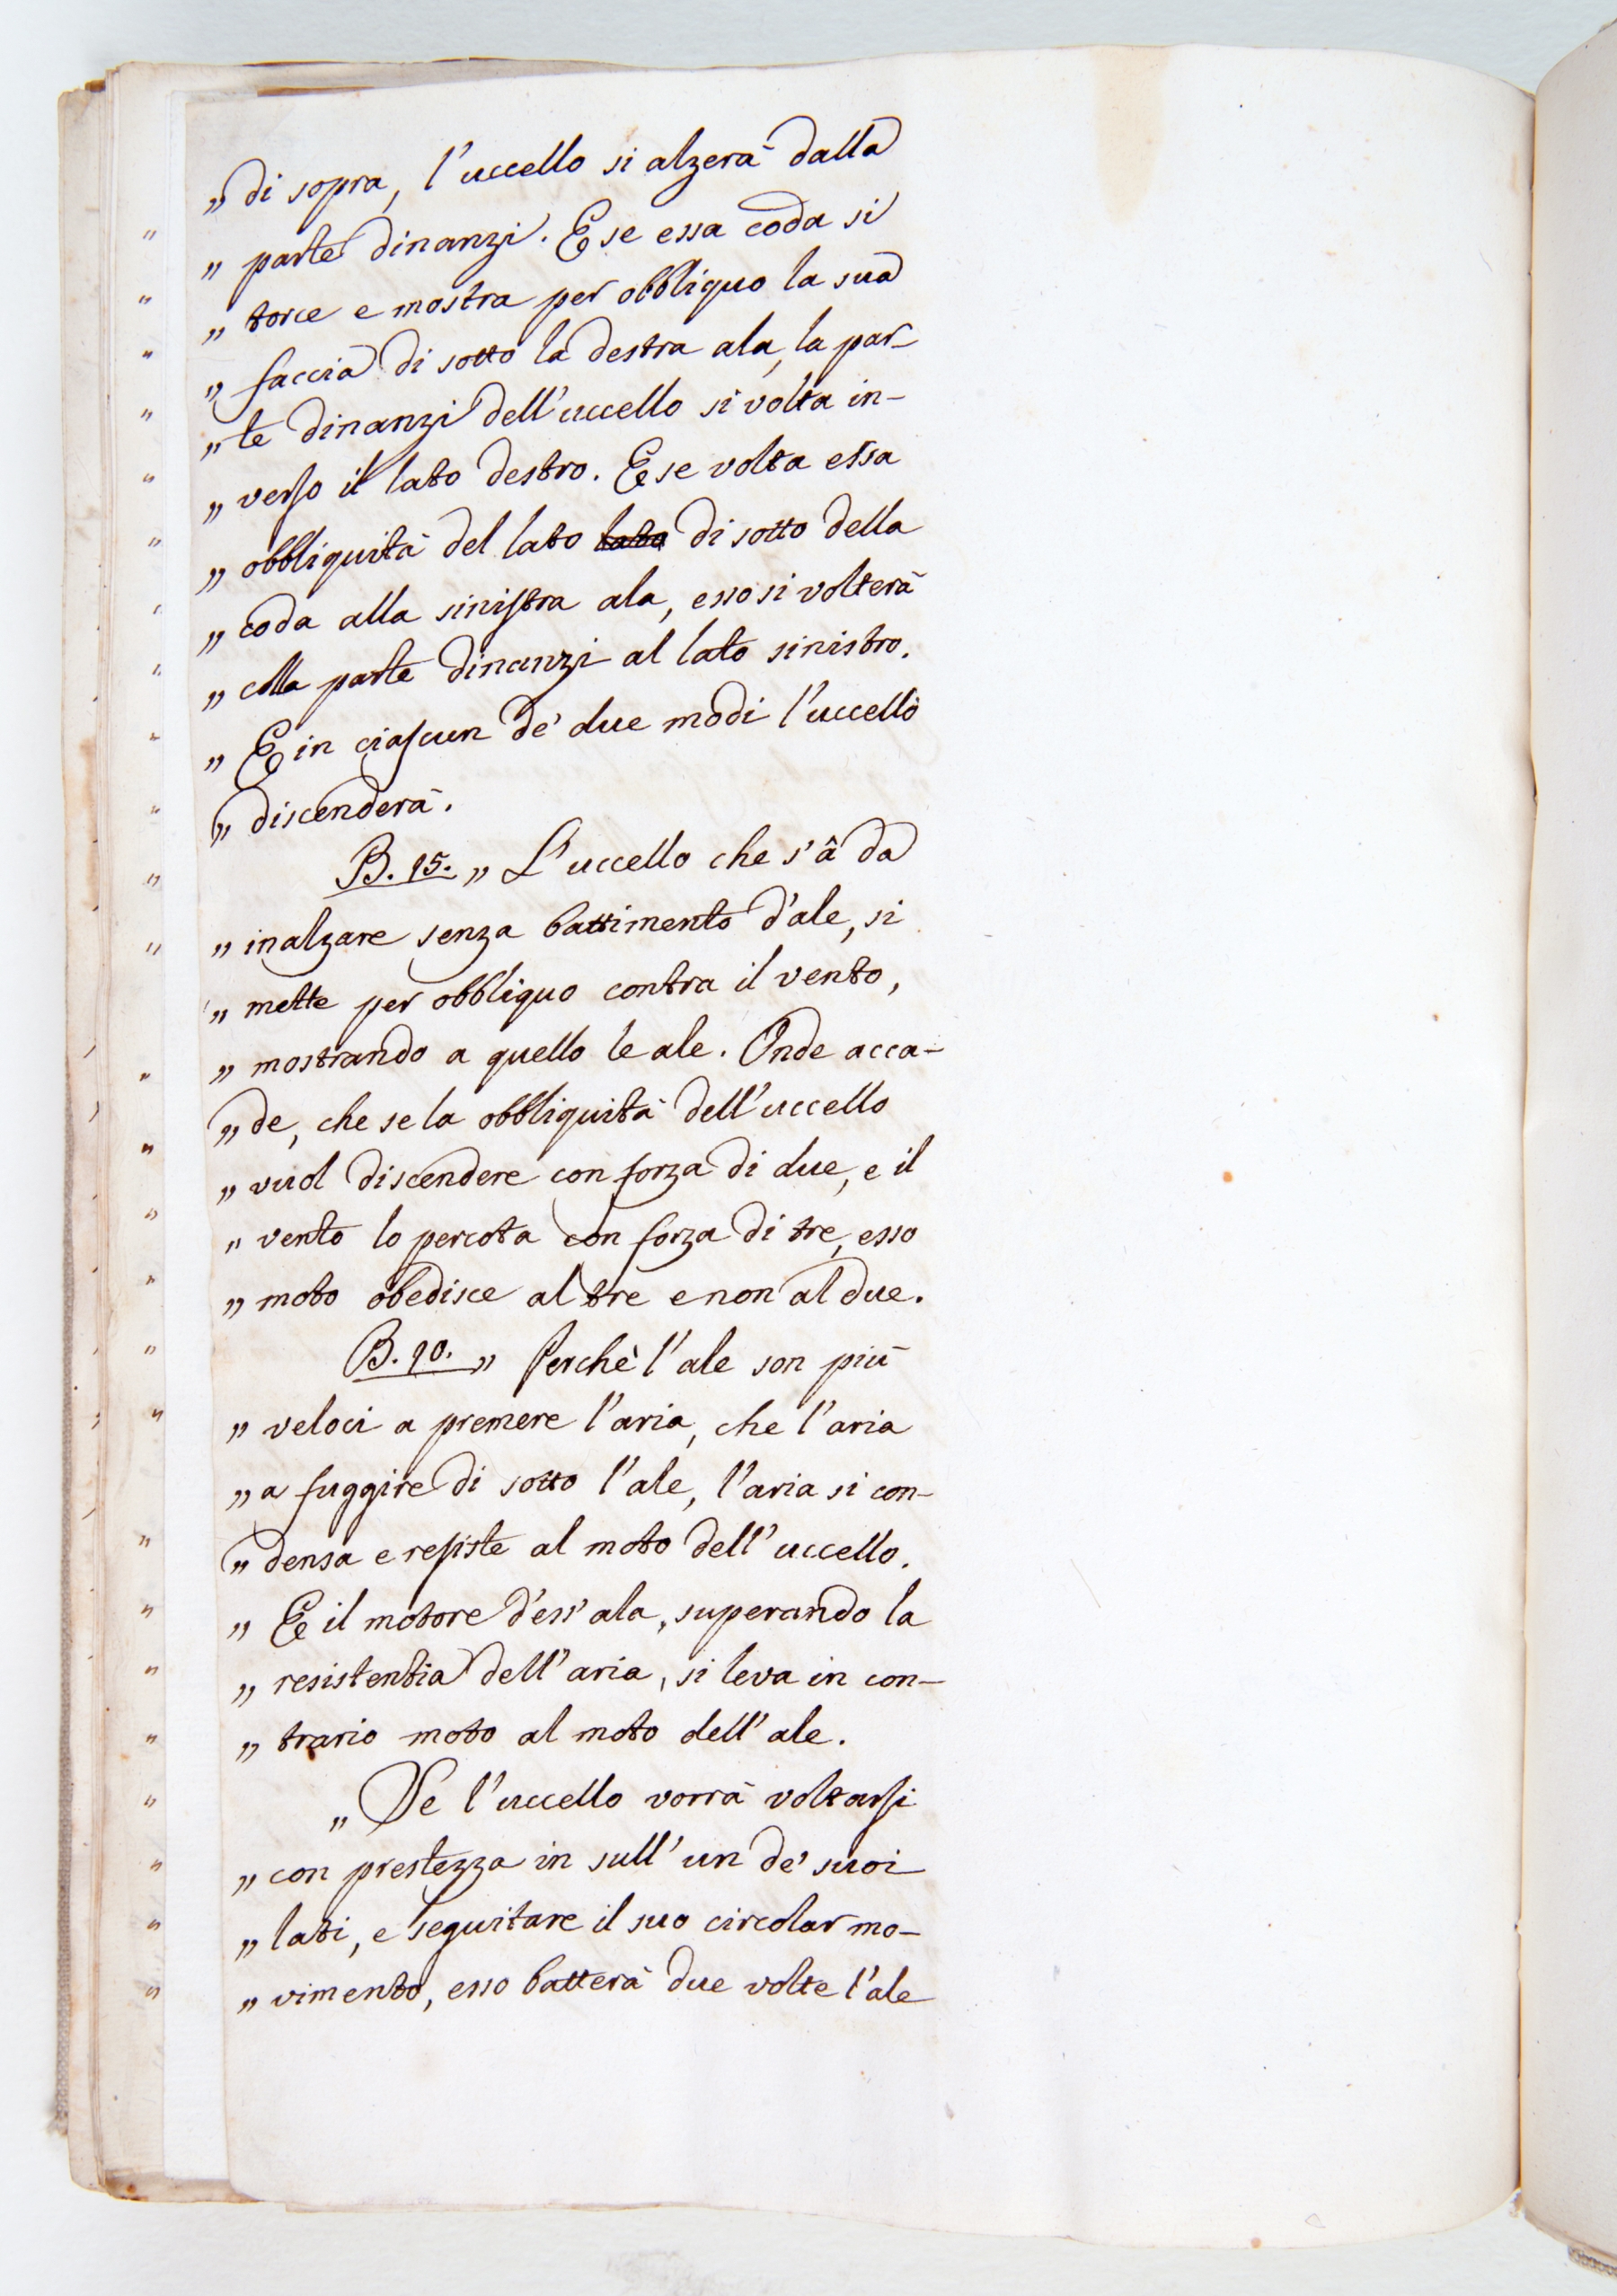 „ di sopra, l'uccello si alzerà dalla
„ parte dinanzi. E se essa coda si
„ torce e mostra per obbliquo la sua
„ faccia di sotto la destra ala, la par-
„ te dinanzi dell'uccello si volta in-
„ verſo il lato destro. E se volta eſsa
„ obbliquità del lato ~~lato~~ di sotto della
„ coda alla siniſtra ala, esso si volterà
„ colla parte dinanzi al lato sinistro.
„ E in ciaſcun de' due modi l'uccello
„ discenderà.
B. 15. „ L'uccello che s'â da
„ inalzare senza battimento d'ale, si
„ mette per obbliquo contra il vento,
„ mostrando a quello le ale. Onde acca-
„ de, che se la obbliquità dell'uccello
„ vuol discendere con forza di due, e il
„ vento lo percota con forza di tre, esso
„ moto obedisce al tre e non al due.
B. 10. „ Perchè l'ale son più
„ veloci a premere l'aria, che l'aria
„ a fuggire di sotto l'ale, l'aria si con-
„ densa e reſiste al moto dell'uccello.
„ E il motore d'ess'ala, superando la
„ resistentia dell'aria, si leva in con-
„ trario moto al moto dell'ale.
„ Se l'uccello vorrà voltarſi
„ con prestezza in sull'un de' suoi
„ lati, e seguitare il suo circolar mo-
„ vimento, esso batterà due volte l'ale